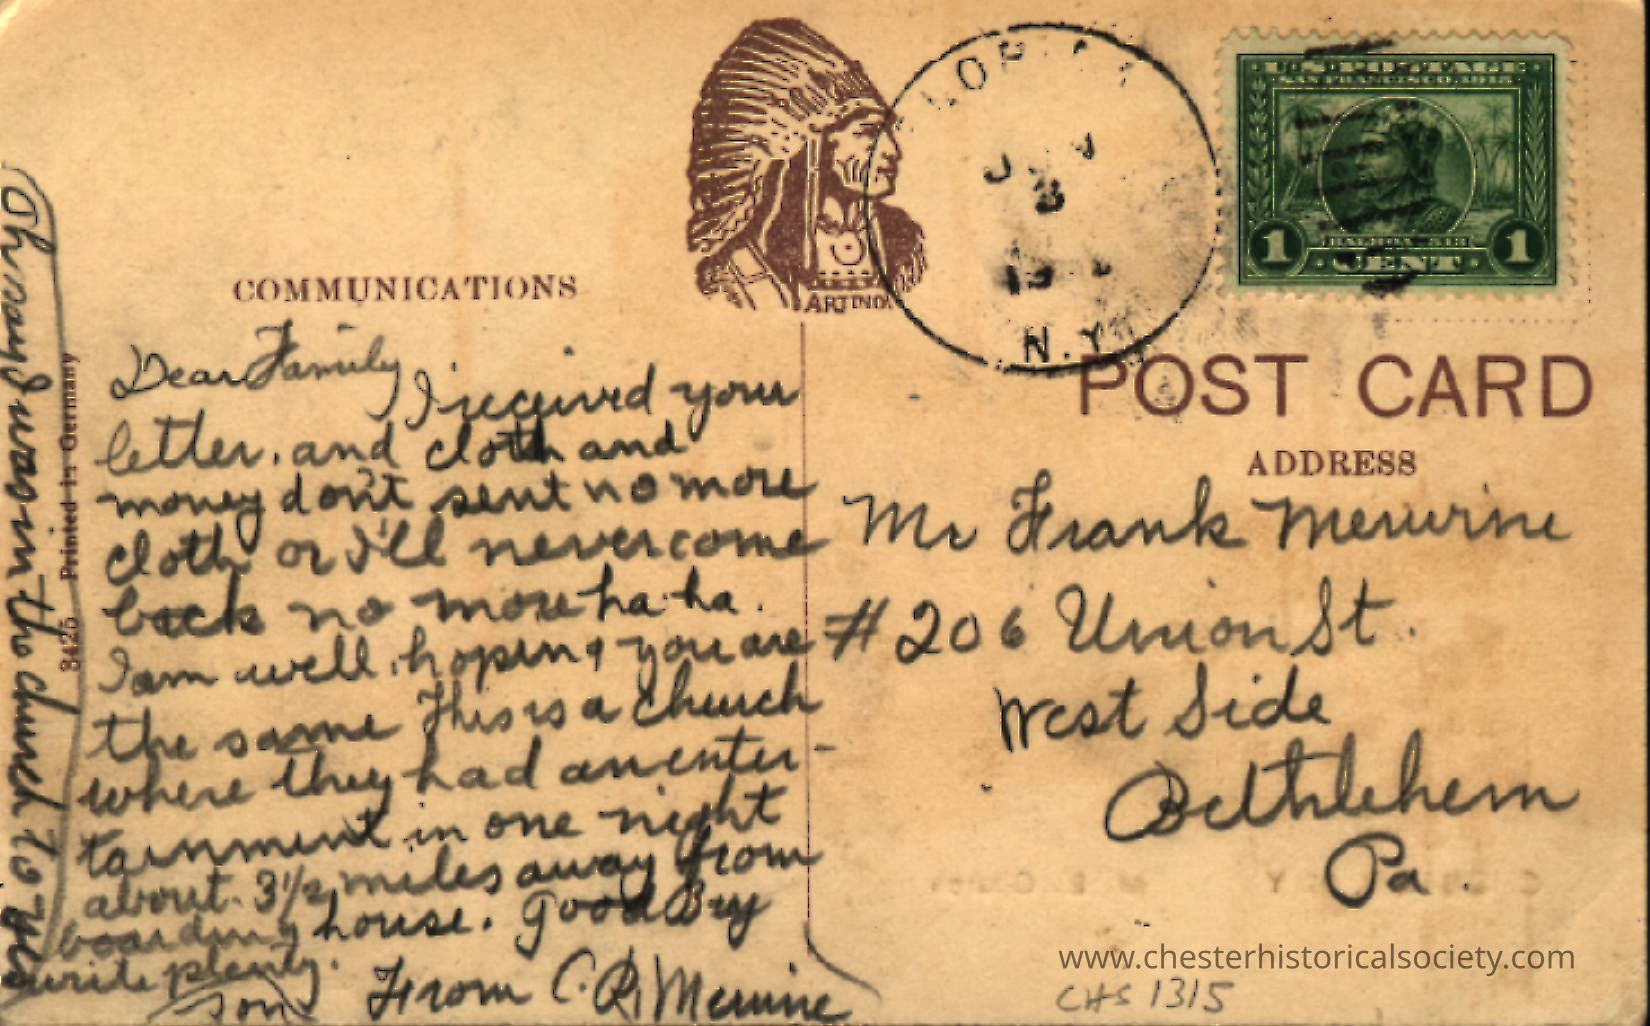 COMMUNICATIONS
ARTINO
N.Y.
U.S. POSTAGE
SAN FRANCISCO, 1915
1 BALBOA, 1513 1
CENT
POST CARD
ADDRESS
Printed in Germany
Dear Family
I received your
letter. and cloth and
money don't sent no more
cloth or I'll never come
back no more ha-ha.
I am well, hoping you are
the same This is a church
where they had an enter-
tainment in one night
about 3 1/2 miles away from
boarding house. Good Bry
write plenty.
son From C. R. Merwine
I was in the church to
Mr Frank Merwine
# 206 Union St.
West Side
Bethlehem
Pa.
www.chesterhistoricalsociety.com
CHS 1315